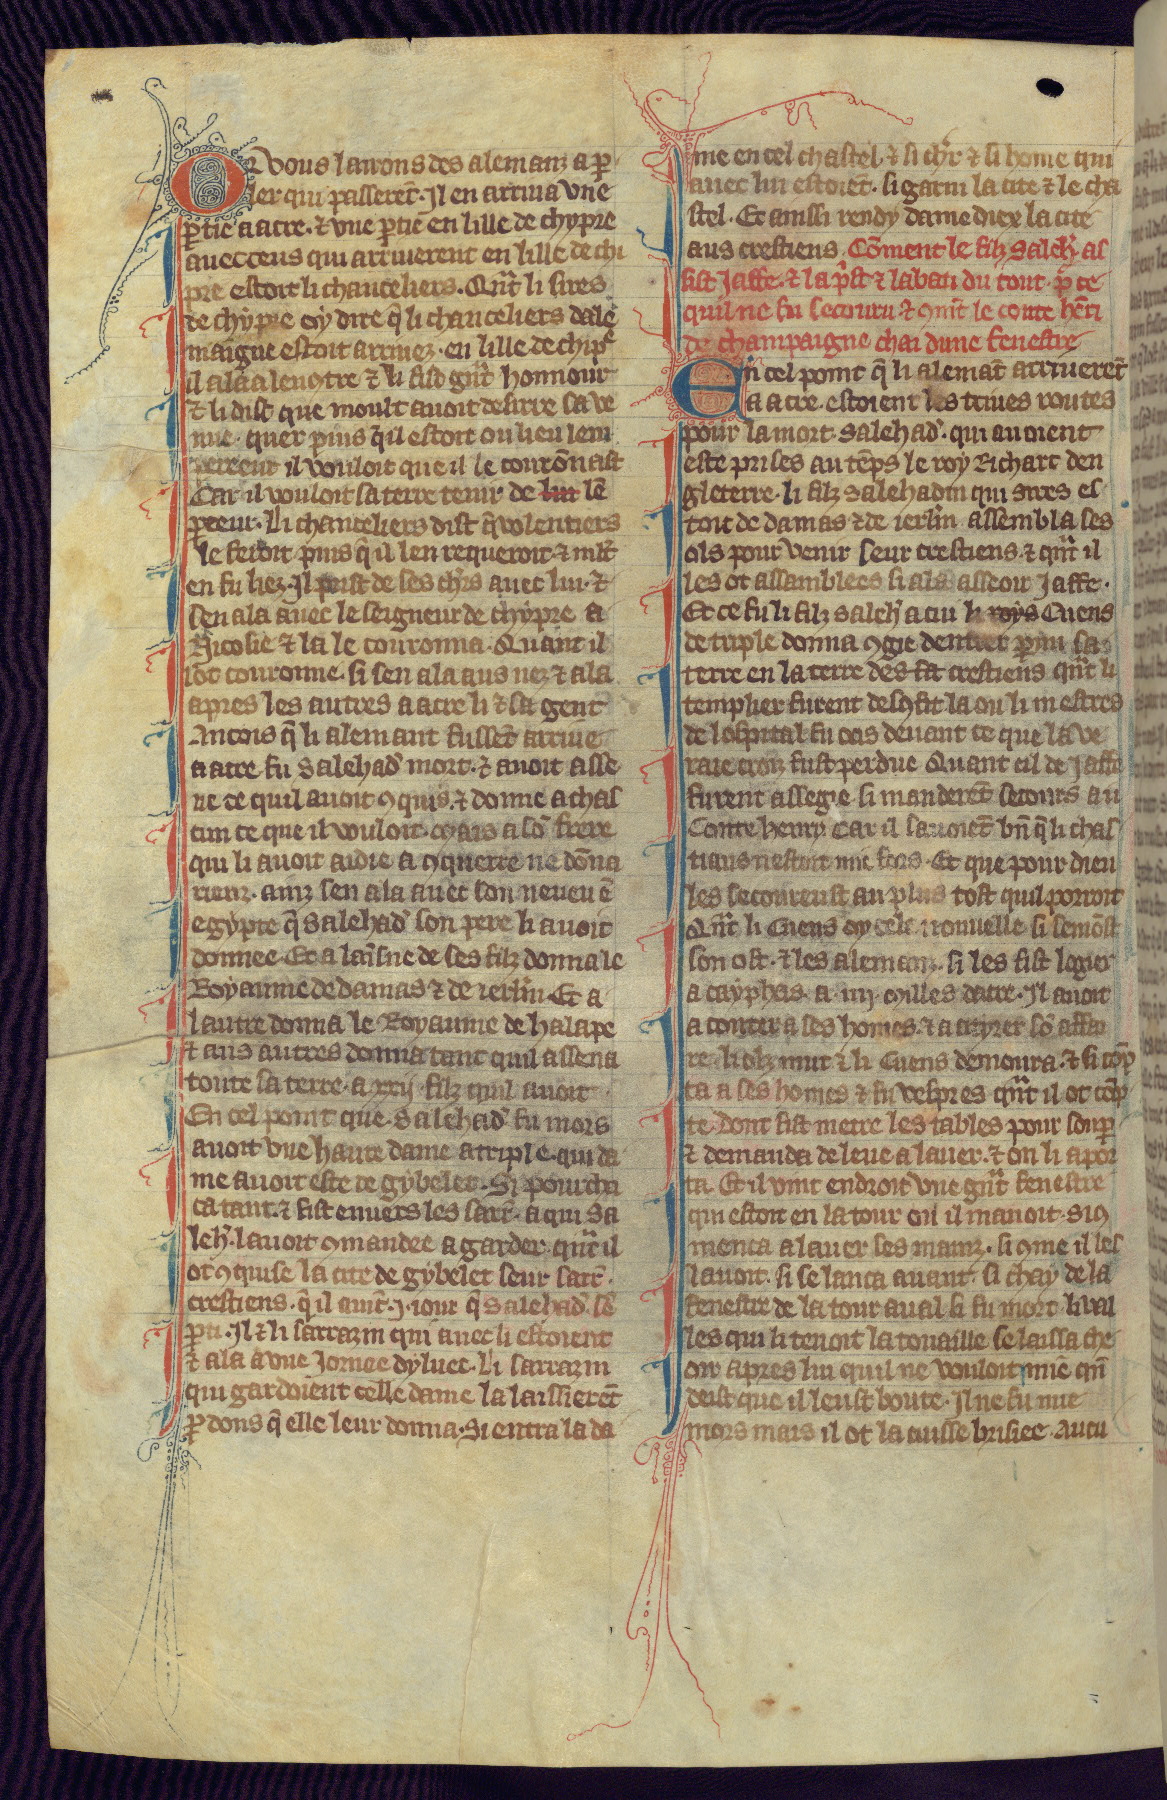 Or vous lairons des alemanz a p̲
ler qui passerēt. Il en arriua vne
p̲tie a acre. ⁊ vne p̲tie en lille de chypre
auec ceus qui arriuerent en lille de chi
pre estoit li chanceliers. Qūt li sires
de chypre oy dire q̄ li chanceliers dalē
maigne estoit arriuez en lille de chip̄
il ala a lencōtre ⁊ li fist gn̄t honnour
⁊ li dist que moult auoit desirre sa ve
nue. quer puis q̄il estoit ou lieu lem
pereeur il vouloit que il le courōnast
Car il vouloit sa terre tenir de lē
pereur. Li chanceliers dist q̄ volentiers
le feroit puis q̄ il len requeroit ⁊ ml̄t
en fu liez. Il prist de ses ch̄rs auec lui. ⁊
sen ala auec le seigneur de chypre a
Nicosie ⁊ la le couronna. Quant il
lot couronne. si sen ala aus nez ⁊ ala
apres les autres a acre li ⁊ sa gent
Ancois q̄ li alemant fussēt arriue
a acre fu Salehad̄ mort. ⁊ auoit asse
ne ce quil auoit ꝯquis. ⁊ donne a chas
cun ce que il vouloit. mais a sō frere
qui li auoit aidie a ꝯquerre ne dōna
rienz. ainz sen ala auec son neueu ē
egypte q̄ Salehad̄ son pere li auoit
donnee. Et a lains̄ne de ses filz donna le
Royaume de damas ⁊ de ierl̄m. Et a
lautre donna le Royaume de halape
⁊ aus autres donna tant quil assena
toute sa terre. a xxij. filz quil auoit
En cel point que Salehad̄ fu mors
auoit vne haute dame a triple. qui da
me auoit este de gybelet. Si pourcha
ca tant. ⁊ fist enuers les sarr̄. a qui Sa
leh̄. lauoit ꝯmandee a garder. qūt il
ot ꝯquise la cite de gybelet seur sarr̄.
crestiens. q̄ il auīt .j. iour q̄ Salehad̄ sē
p̲ti. Il ⁊ li sarrazin qui auec li estoient
⁊ ala a vne Jornee dyluec. Li sarrazin
qui gardoient celle dame la laissierēt
p̲ dons q̄ elle leur donna. Si entra la da
me en cel chastel. ⁊ si ch̄r ⁊ si home qui
auec lui estoiēt. si garni la cite ⁊ le cha
stel. Et aussi rendy dame diex la cite
aus crestiens. Cōment le filz Saleh̄. as
sist Jaffe. ⁊ la p̄st ⁊ labati du tout. p̲ ce
quil ne fu secouru ⁊ ꝯmt̄ le conte hēri
de champaigne chai dune fenestre
En cel point q̄ li alemāt arriuerēt
a acre. estoient les triues routes
pour la mort Salehad̄. qui auoient
este prises au tēps le roy Richart den
gleterre. li filz Salehadin qui sires es
toit de damas ⁊ de ierl̄m assembla ses
ols pour venir seur crestiens. ⁊ qūt il
les ot assamblees si ala asseoir Jaffe.
Et ce fu li filz Saleh̄ a cui li roys Cuens
de triple donna ꝯgie dentrer p̲mi sa
terre en la terre des crestiens qūt li
templier furent descōfit la ou li mestres
de lospital fu ocis deuant ce que la ve
raie croiz fust perdue. Quant cil de Jaffe
furent assegie. si manderēt secours au
Conte henry. Car il sauoiēt bn̄ q̄ li chas
tiaus nestoit mie fors. Et que pour dieu
les secoureust au plus tost quil porroit
Qūt li Cuens oy cele nouuelle si semōst
son ost. ⁊ les alemanz. si les fist logier
a cayphas. a .iiij. milles dacre. Il auoit
a conter a ses homes. ⁊ a atyrer sō affai
re. li olz mut ⁊ li Cuens demoura. ⁊ si cōp̲
ta a ses homes ⁊ fu vespres qūt il ot cōp̲
te. dont fist metre les tables pour soup̲
⁊ demanda de leue a lauer. ⁊ on li apor
ta. Et il vint endroit vne gn̄t fenestre
qui estoit en la tour ou il manoit. Si ꝯ
menca a lauer ses mainz. si ꝯme il les
lauoit. si se lanca auant. si chay de la
fenestre de la tour aual si fu mort. li val
les qui li tenoit la touaille se laissa che
oir apres lui quil ne vouloit mie qn̄
deist que il leust boute. Il ne fu mie
mors mais il ot la cuisse brisiee. Aucu